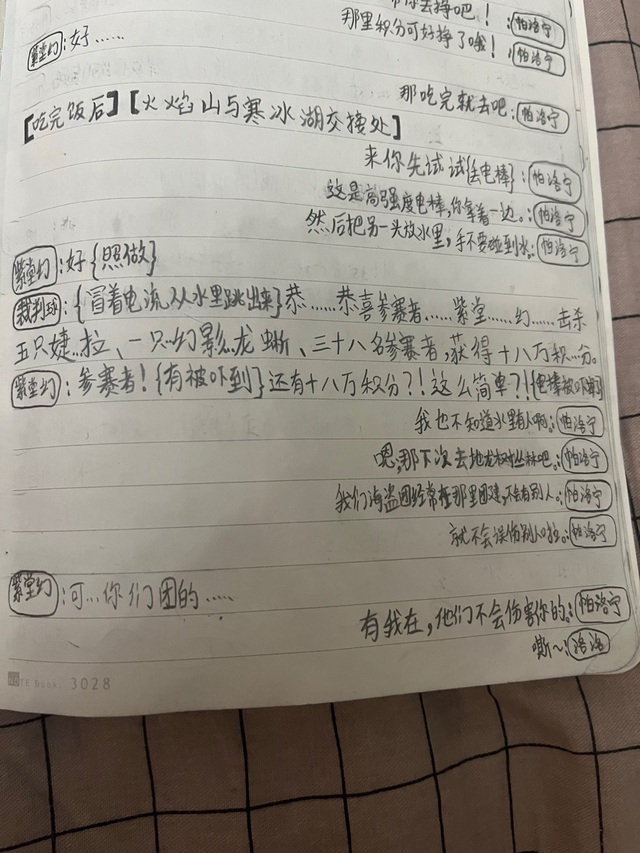 你去挣吧！：帕洛宁
那里积分可好挣了哦！：帕洛宁
紫堂幻：好……
那吃完就去吧：帕洛宁
【吃完饭后】【火焰山与寒冰湖交接处】
来你先试试{电棒}：帕洛宁
这是高强度电棒，你拿着一边。：帕洛宁
然后把另一头放水里；手不要碰到水：帕洛宁
紫堂幻：好{照做}
裁判球：{冒着电流从水里跳出来}恭……恭喜参赛者……紫堂……幻……击杀
五只婕…拉、一只…幻影…龙蜥、三十八名参赛者，获得十八万积…分。
紫堂幻：参赛者！{有被吓到}还有十八万积分？！这么简单？！{电棒被吓
我也不知道水里有人啊。：帕洛宁
嗯，那下次去地龙树丛林吧。：帕洛宁
我们海盗团经常在那里团建，不会有别人。：帕洛宁
就不会误伤别人啦。：帕洛宁
紫堂幻：可…你们团的……
有我在，他们不会伤害你的。：帕洛宁
嘶~：洛洛
TE Book 3028